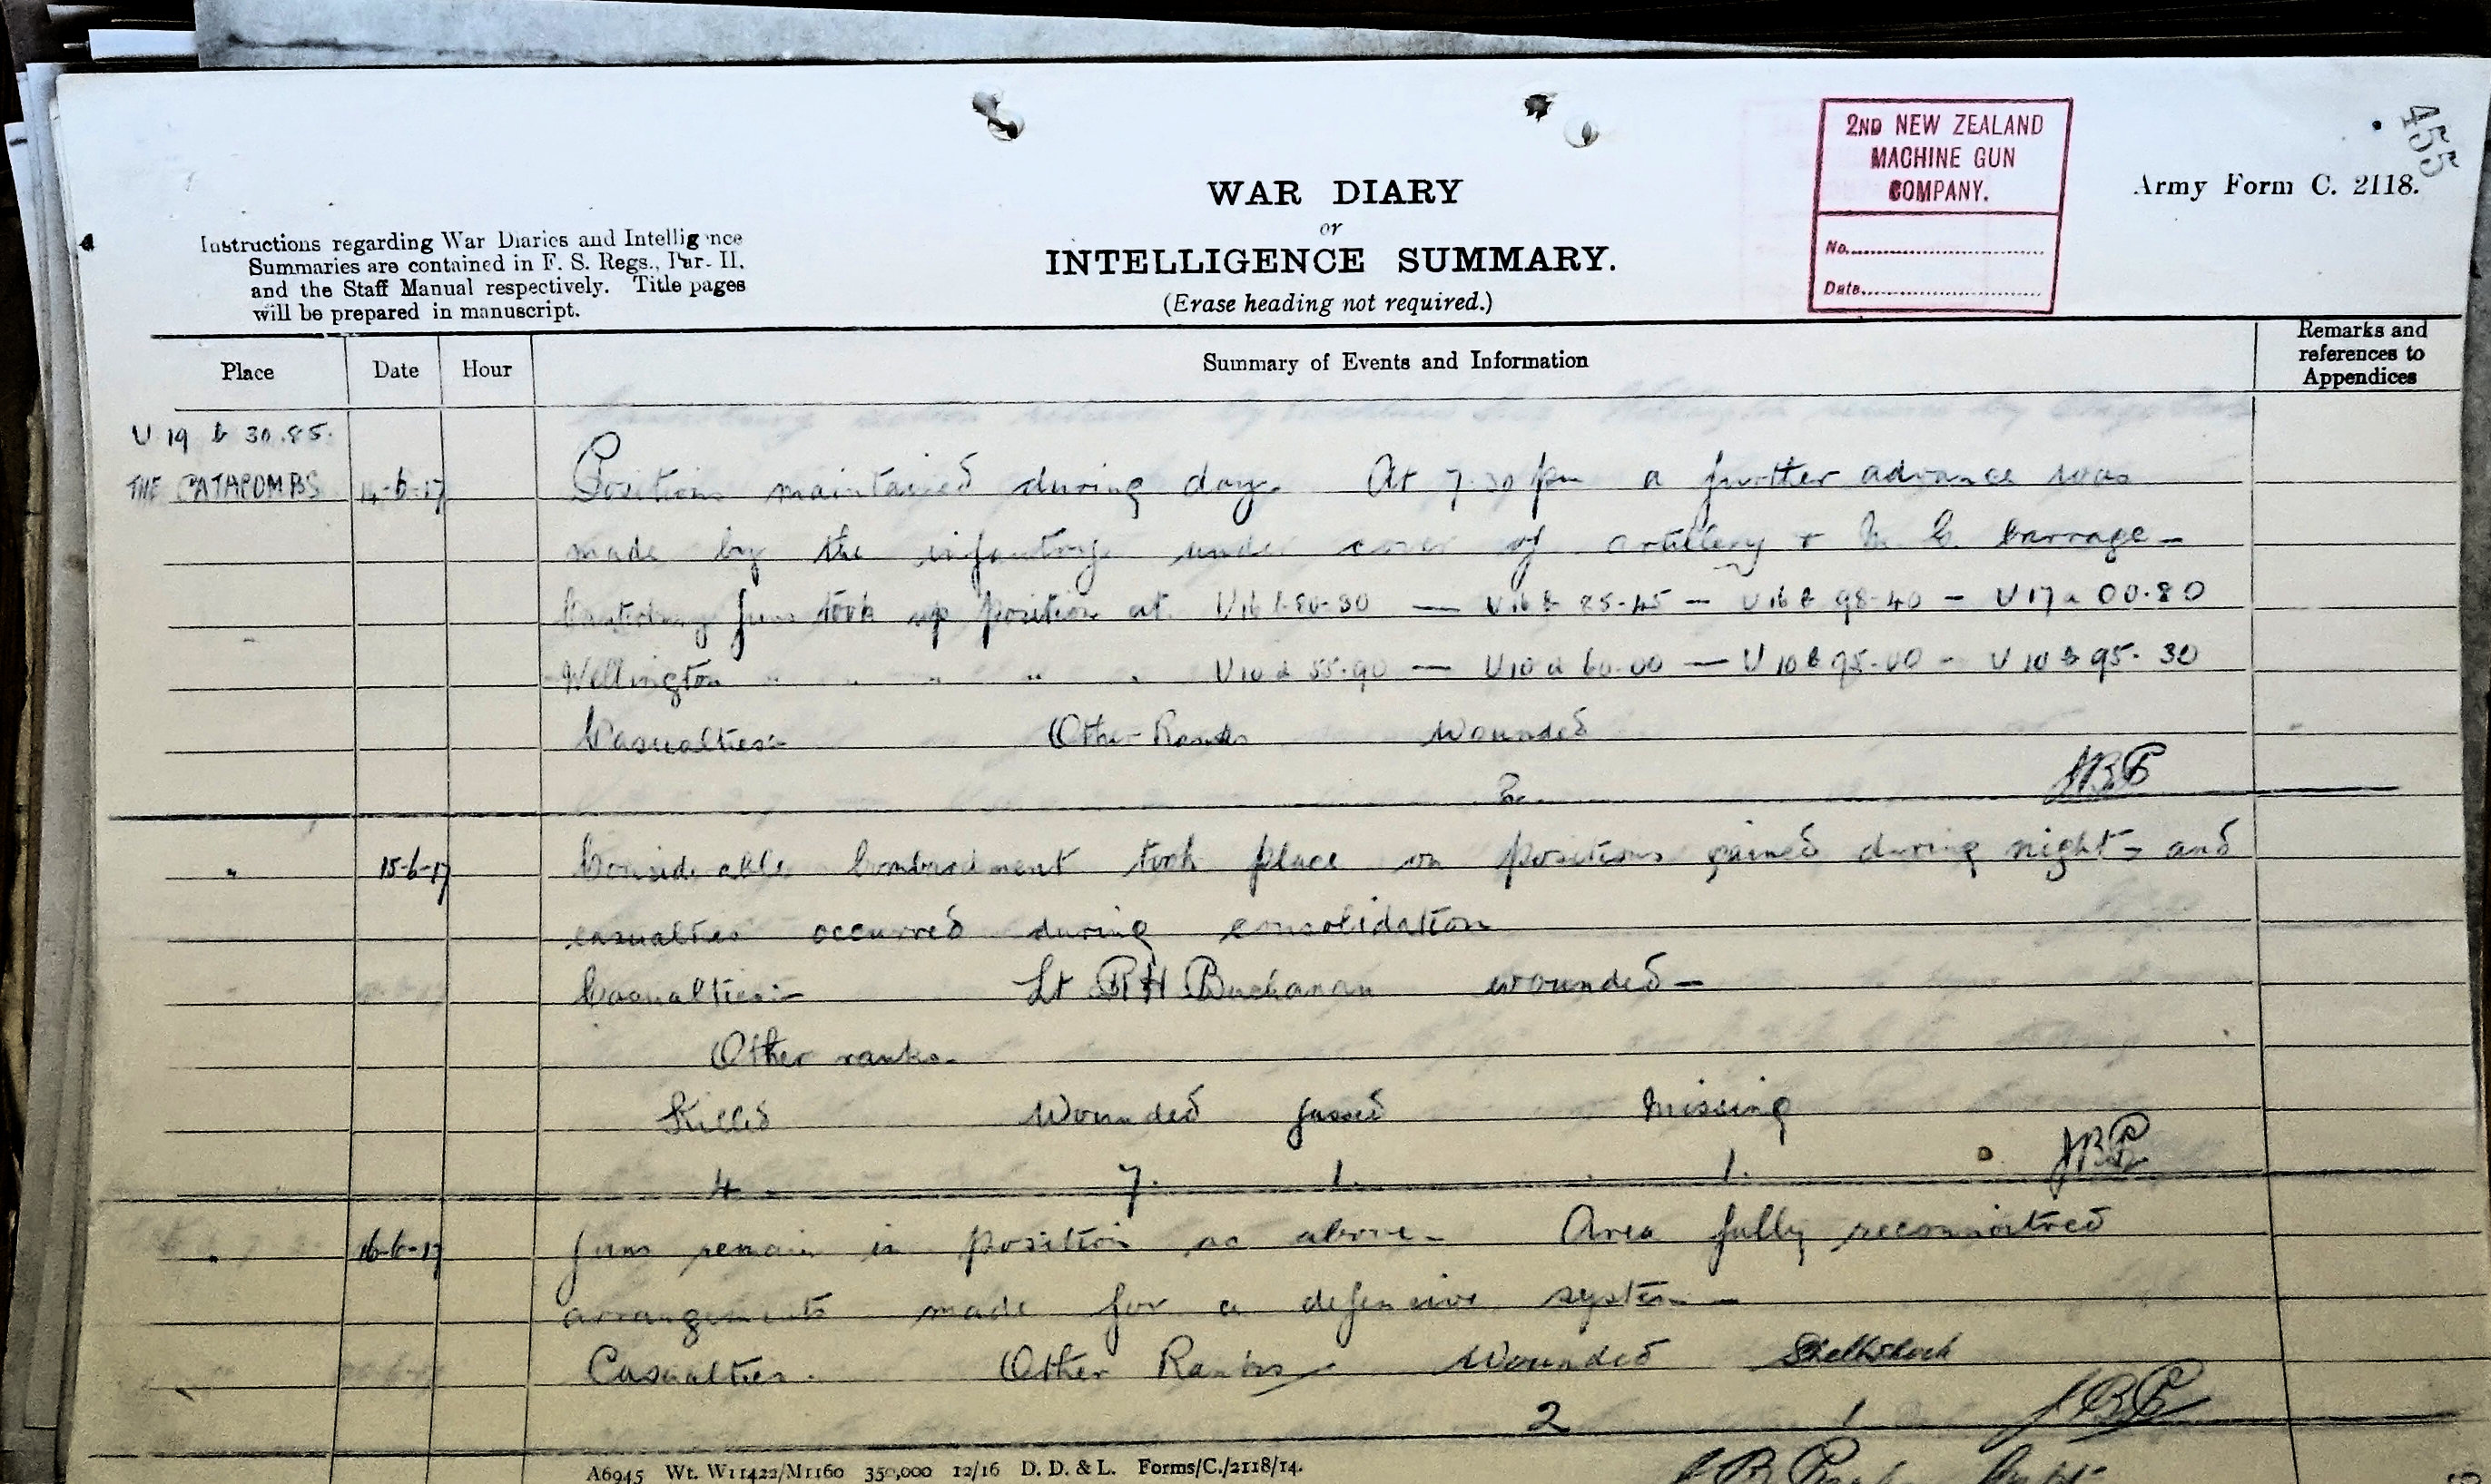 455
2ND NEW ZEALAND
MACHINE GUN
COMPANY.
No.
Date.
Army Form C. 2118.
WAR DIARY
or
INTELLIGENCE SUMMARY.
(Erase heading not required.)
Instructions regarding War Diaries and Intelligence
Summaries are contained in F. S. Regs., Par. II.
and the Staff Manual respectively. Title pages
will be prepared in manuscript.
Place Date Hour Summary of Events and Information Remarks and references to Appendices
U 19 b 30.85.
THE CATACOMBS 14-6-17 Positions maintained during day. At 7.30 pm a further advance was
made by the infantry under cover of artillery + M. G. barrage -
Canterbury guns took up position at U16 b 80-30 — U16 b 85-45 — U16 b 98-40 — U17 a 00.80
Wellington " " " " " U10 d 55.90 — U10 d 60.00 — U 10 b 95.00 - U 10 b 95.30
Casualties:- Other Ranks Wounded
2. JBP
" 15-6-17 Considerable bombardment took place on positions gained during night - and
casualties occurred during consolidation
Casualties:- Lt RH Buchanan wounded -
Other ranks.
Killed Wounded gassed Missing
4. 7. 1. 1. JBP
" 16-6-17 guns remain in position as above - Area fully reconnoitred
arrangements made for a defensive system -
Casualties. Other Ranks Wounded Shellshock
2 1 JBP
A6945 Wt. W11422/M1160 350,000 12/16 D. D. & L. Forms/C./2118/14.